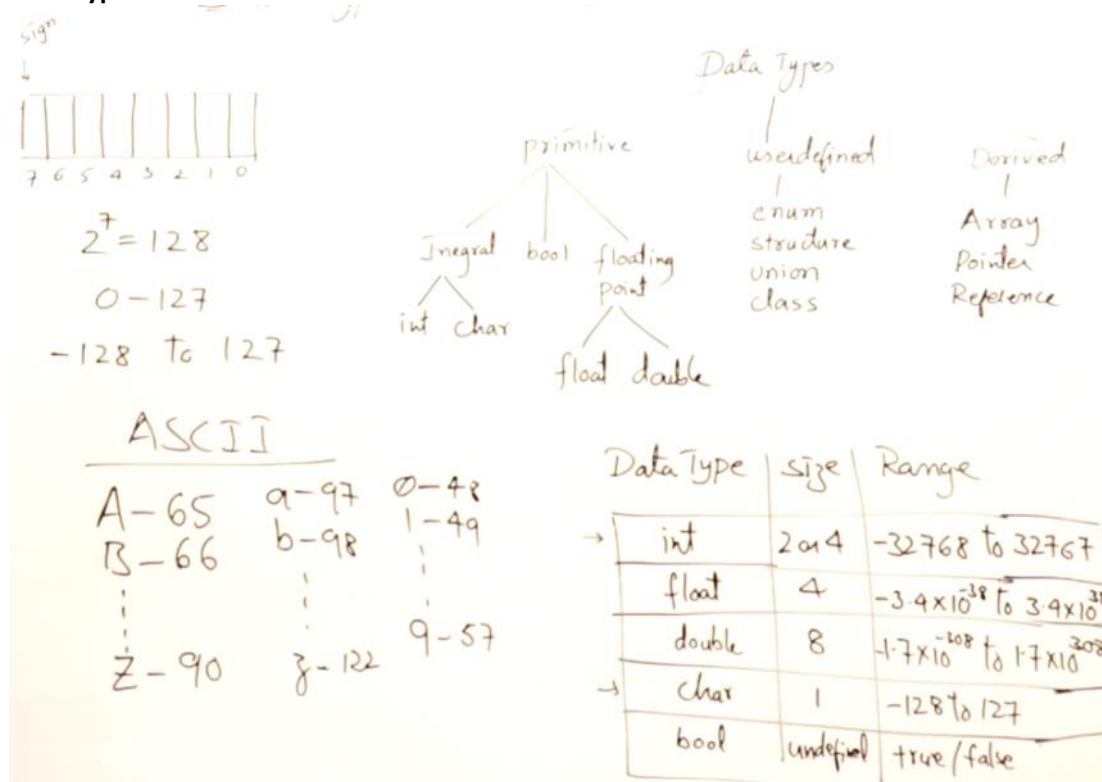 sign
7 6 5 4 3 2 1 0
2⁷ = 128
0 - 127
-128 to 127
Data Types
primitive
userdefined
Derived
Inegral bool floating point
int char
float double
enum
structure
union
class
Array
Pointer
Reference
ASCII
A - 65 a - 97 0 - 48
B - 66 b - 98 1 - 49
Z - 90 z - 122 9 - 57
Data Type size Range
int 2 or 4 -32768 to 32767
float 4 -3.4×10⁻³⁸ to 3.4×10³⁸
double 8 -1.7×10⁻³⁰⁸ to 1.7×10³⁰⁸
char 1 -128 to 127
bool undefined true/false